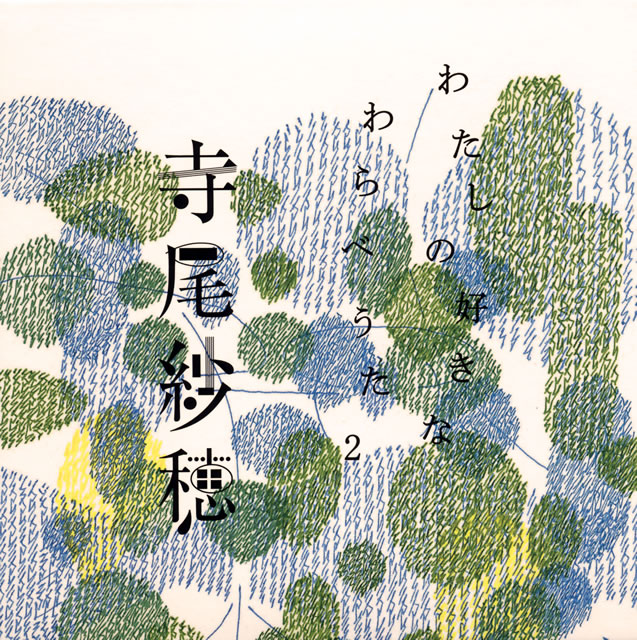 わたしの好きな
わらべうた2
寺尾紗穂